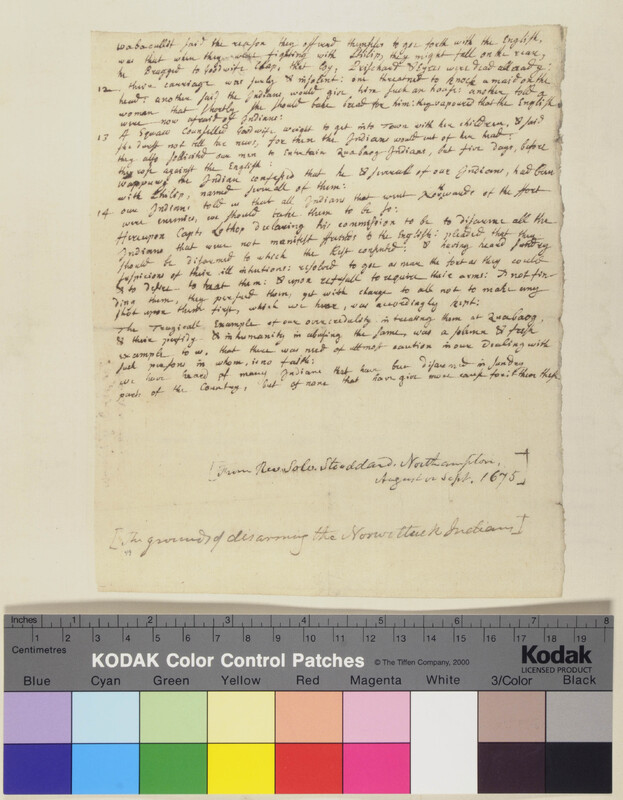 wabacullit said the reason they offered themselves to goe forth with the English,
was that when they were fighting with Philip, they might fall on the rear,
he Bragged to Goodwife that Coy, Pritchard & Ayres were dead allready:
12 their carriage was surly & insolent: one threatned to knock a maid on the
head: another said the Indians would give him such an house: another told a
woman that shortly she should bake bread for him: they vapoured that the English
were now afraid of Indians:
13 A Squaw Counselled Goodwife wright to get into Town with her children, & said
she durst not tell the news, for then the Indians would cut of her head.
they also sollicited our men to Entertain Quabaog Indians, but five days, before
they rose against the English:
the Indian confessed that he & severall of our Indians, had been
with Philip, named severall of them:
14 our Indians told us that all Indians that went of the fort
were enimies, we should take them to be so:
Hereupon Capt: Lothop declaring his commission to be to disarme all the
Indians that were not manifest to the English: pleaded that they
should be disarmed to which the Rest consented: & having heard sundry
suspicions of their ill intentions: resolved to goe as near the fort as they could
& to desire to treat them: & upon refusall to require their arms: & not fin-
ding them, they pursued them, yet with charge to all not to make any
shot upon them first, which we hear, was accordingly kept:
The Tragicall Example of our overcredulity in treating them at Quabaog,
& their perfidy & inhumanity in abusing the same, was a solemn & fresh
example to us, that there was need of utmost caution in our Dealing with
such persons in whom, is no faith:
we have heard of many Indians that have been disarmed in sundry
parts of the Country, but of none that have give more cause for it then these
[From Rev. Solo. Stoddard. Northampton.
August or Sept. 1675]
[The grounds of disarming the Norwottuck Indians]
Inches 1 2 3 4 5 6 7 8
Centimetres 1 2 3 4 5 6 7 8 9 10 11 12 13 14 15 16 17 18 19
KODAK Color Control Patches © The Tiffen Company, 2000 Kodak
LICENSED PRODUCT
Blue Cyan Green Yellow Red Magenta White 3/Color Black